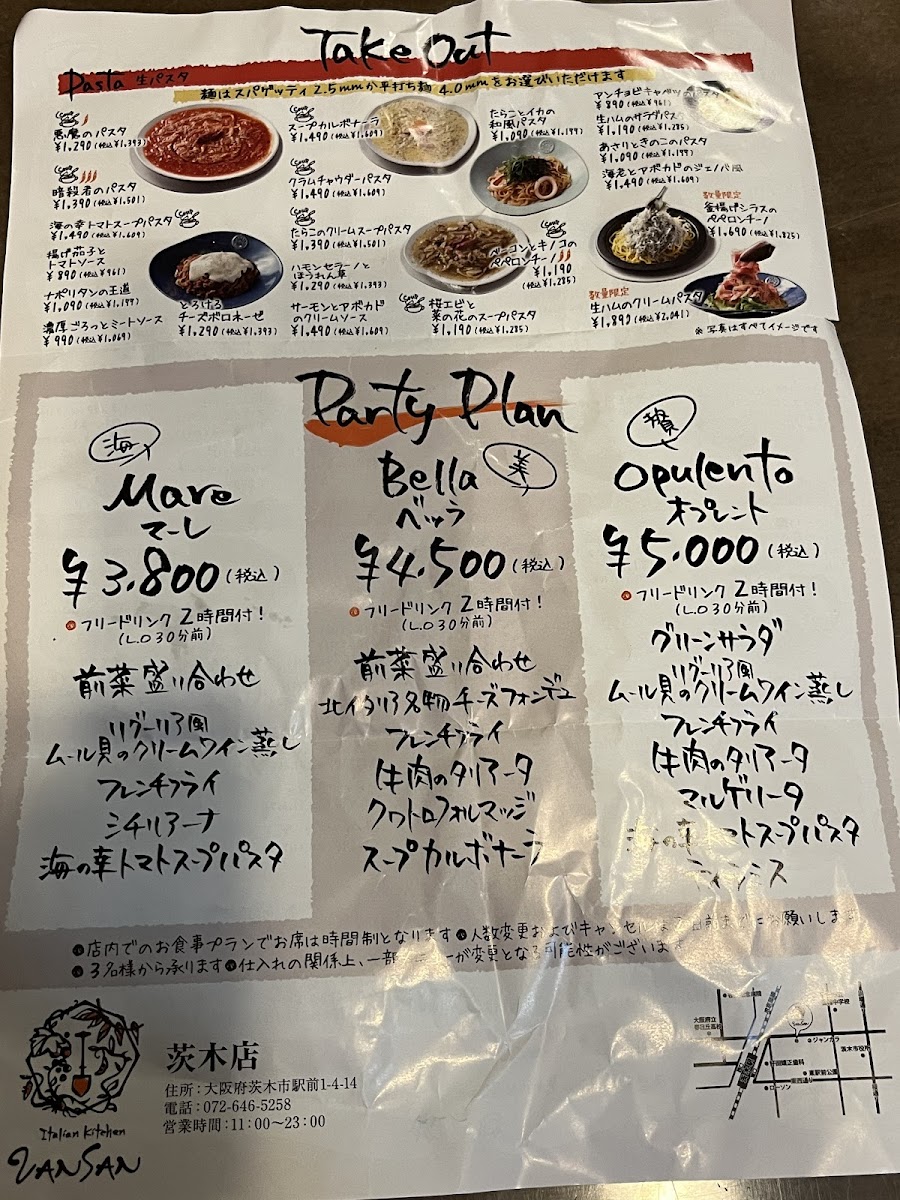 Take Out
Pasta 生パスタ
麺はスパゲッティ 2.5mmか平打ち麺 4.0mmをお選びいただけます
悪魔のパスタ
¥1,290 (税込¥1,393)
暗殺者のパスタ
¥1,390 (税込¥1,501)
海の幸トマトスープパスタ
¥1,490 (税込¥1,609)
揚げ茄子と
トマトソース
¥890 (税込¥961)
ナポリタンの王道
¥1,090 (税込¥1,177)
濃厚ごろっとミートソース
¥990 (税込¥1,069)
とろける
チーズボロネーゼ
¥1,290 (税込¥1,393)
スープカルボナーラ
¥1,490 (税込¥1,609)
クラムチャウダーパスタ
¥1,490 (税込¥1,609)
たらこのクリームスープパスタ
¥1,390 (税込¥1,501)
ハモンセラーノと
ほうれん草
¥1,290 (税込¥1,393)
サーモンとアボカド
のクリームソース
¥1,490 (税込¥1,609)
たらことイカの
和風パスタ
¥1,090 (税込¥1,177)
ベーコンとキノコの
ペペロンチーノ
¥1,190
(税込¥1,285)
桜エビと
菜の花のスープパスタ
¥1,190 (税込¥1,285)
アンチョビキャベツのパスタ
¥890 (税込¥961)
生ハムのサラダパスタ
¥1,190 (税込¥1,285)
あさりときのこのパスタ
¥1,090 (税込¥1,177)
海老とアボカドのジェノバ風
¥1,490 (税込¥1,609)
数量限定
釜揚げシラスの
ペペロンチーノ
¥1,690 (税込¥1,825)
数量限定
生ハムのクリームパスタ
¥1,890 (税込¥2,041)
※写真はすべてイメージです
Party Plan
海
Mare
マーレ
¥3,800 (税込)
フリードリンク2時間付!
(L.O 30分前)
前菜盛り合わせ
リグーリア風
ムール貝のクリームワイン蒸し
フレンチフライ
シチリアーナ
海の幸トマトスープパスタ
美
Bella
ベッラ
¥4,500 (税込)
フリードリンク2時間付!
(L.O 30分前)
前菜盛り合わせ
北イタリア名物チーズフォンデュ
フレンチフライ
牛肉のタリアータ
クワトロフォルマッジ
スープカルボナーラ
Opulento
オプレント
¥5,000 (税込)
フリードリンク2時間付!
(L.O 30分前)
グリーンサラダ
リグーリア風
ムール貝のクリームワイン蒸し
フレンチフライ
牛肉のタリアータ
マルゲリータ
海の幸トマトスープパスタ
ティラミス
店内でのお食事プランでお席は時間制となります 人数変更およびキャンセルは 前までにお願いします
3名様から承ります 仕入れの関係上、一部メニューが変更となる可能性がございます
Italian Kitchen
VANSAN
茨木店
住所:大阪府茨木市駅前1-4-14
電話:072-646-5258
営業時間:11:00〜23:00
大阪府立
春日丘高校
中学校
ジャンカラ
茨木市役所
矯正歯科
駅前公園
東西通り
ローソン